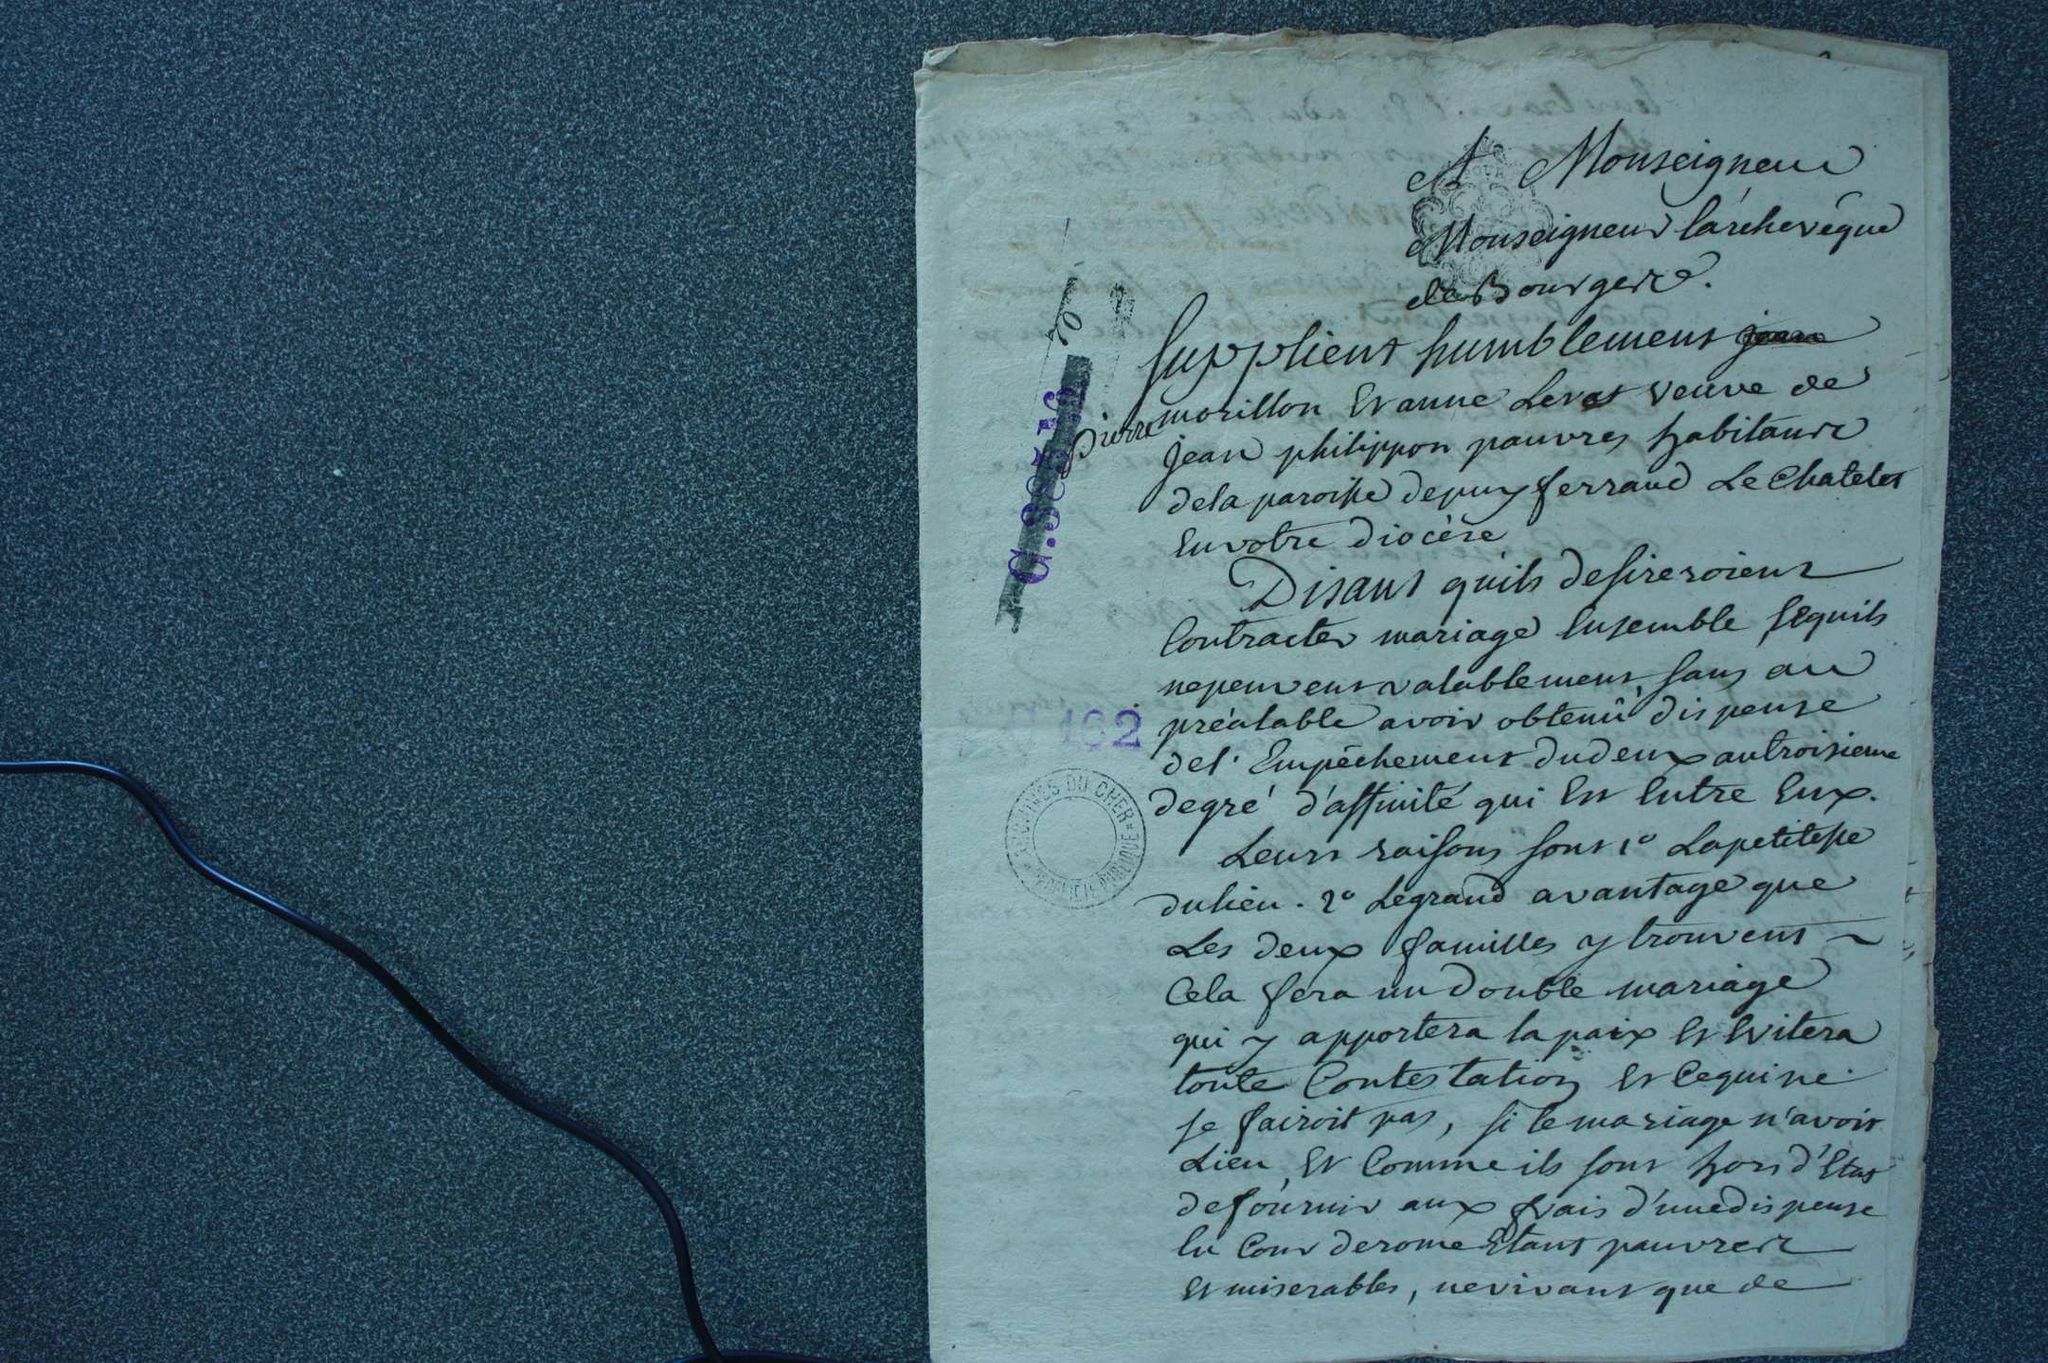 A Monseigneur
Monseigneur l'archevêque
de Bourges.
Supplient humblement jean
pierre morillon Et anne Levet veuve de
jean philippon pauvres habitants
dela paroisse depuy ferrand Le Chatelet
En votre diocèse
Disant quils desireroient
Contracter mariage Ensemble ce quils
nepeuvent valablement sans au
préalable avoir obtenû dispense
del'Empêchement dudeux autroisieme
degré d'affinité qui Est Entre Eux.
Leurs raisons sont 1° Lapetitesse
dulieu. 2° Legrand avantage que
Les deux familles y trouvent
Cela fera un double mariage
qui y apportera la paix Et Evitera
toute Contestation Et Cequi ne
se fairoit pas, si le mariage n'avoit
Lieu, Et Comme ils sont hors d'Etat
defournir aux frais d'unedispense
En Cour derome Etant pauvres
Et miserables, nevivant que de
G.3026
162
ARCHIVES DU CHER